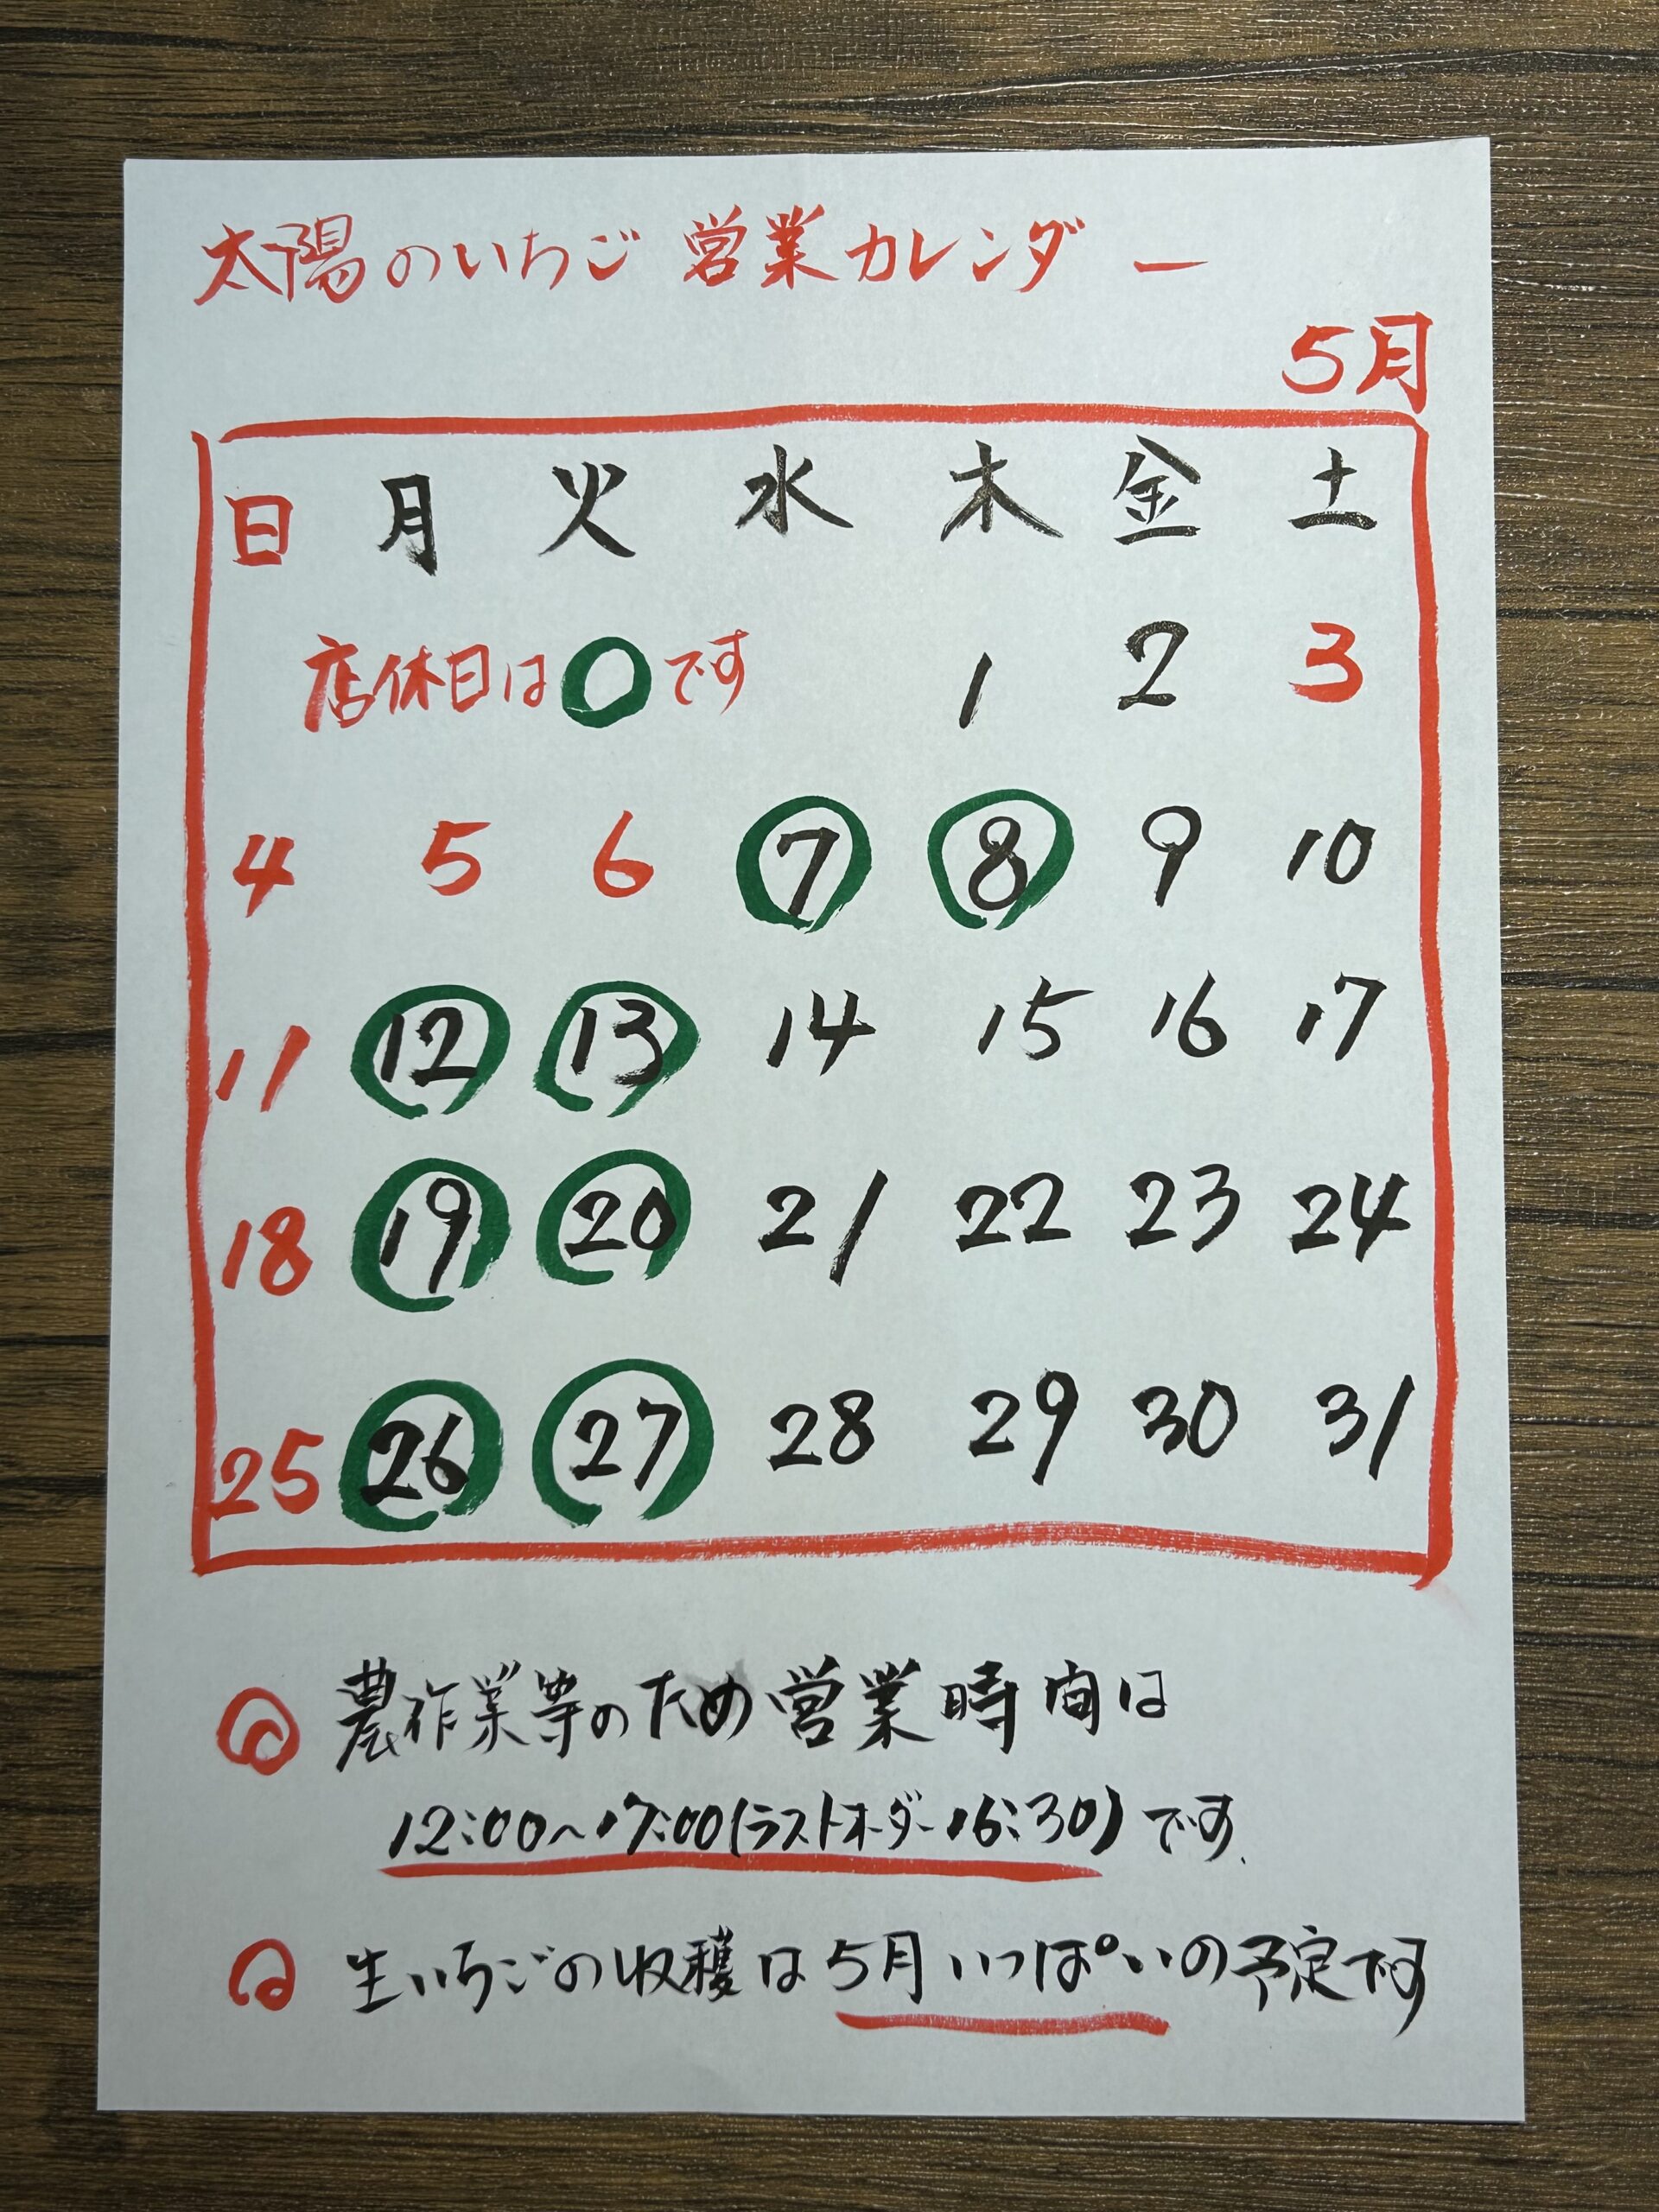 太陽のいちご 営業カレンダー
5月
日 月 火 水 木 金 土
店休日は○です 1 2 3
4 5 6 7 8 9 10
11 12 13 14 15 16 17
18 19 20 21 22 23 24
25 26 27 28 29 30 31
農作業等のため営業時間は
12:00~17:00(ラストオーダー16:30)です。
生いちごの収穫は5月いっぱいの予定です